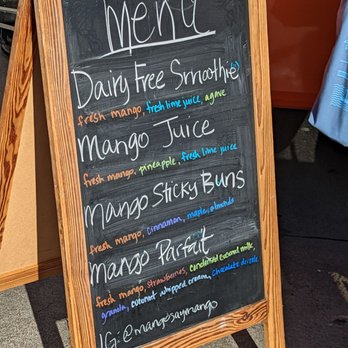 Menu
Dairy Free Smoothie
fresh mango, fresh lime juice, agave
Mango Juice
fresh mango, pineapple, fresh lime juice
Mango Sticky Buns
fresh mango, cinnamon, maple, almonds
Mango Parfait
fresh mango, strawberries, condensed coconut milk,
granola, coconut whipped cream, chocolate drizzle
IG: @mangosaymango